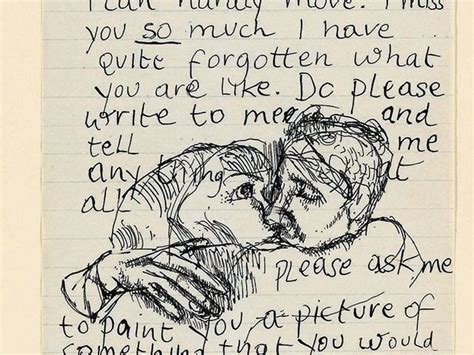 I can hardly move. I miss
you so much I have
quite forgotten what
you are like. Do please
write to me and
tell me
any thing at
all
please ask me
to paint you a picture of
something that you would